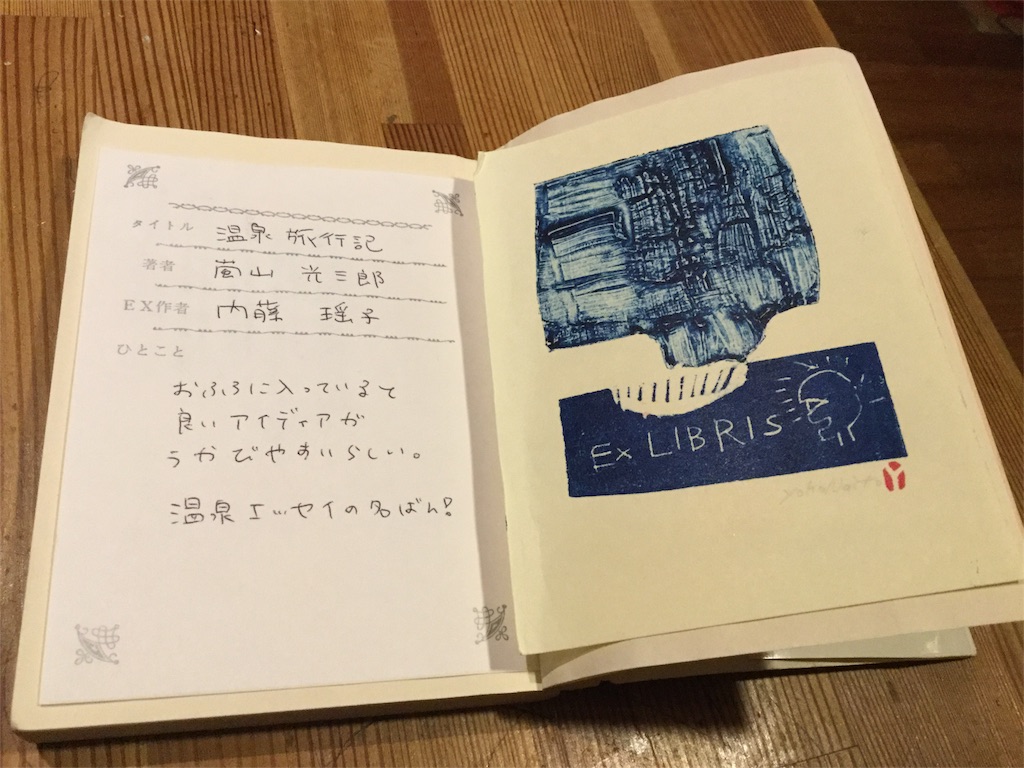 タイトル 温泉 旅行記
著者 嵐山 光三郎
EX作者 内藤 瑶子
ひとこと
おふろに入っていると
良いアイディアが
うかびやすいらしい。
温泉エッセイの名ばん!
EX LIBRIS
yoko Naito